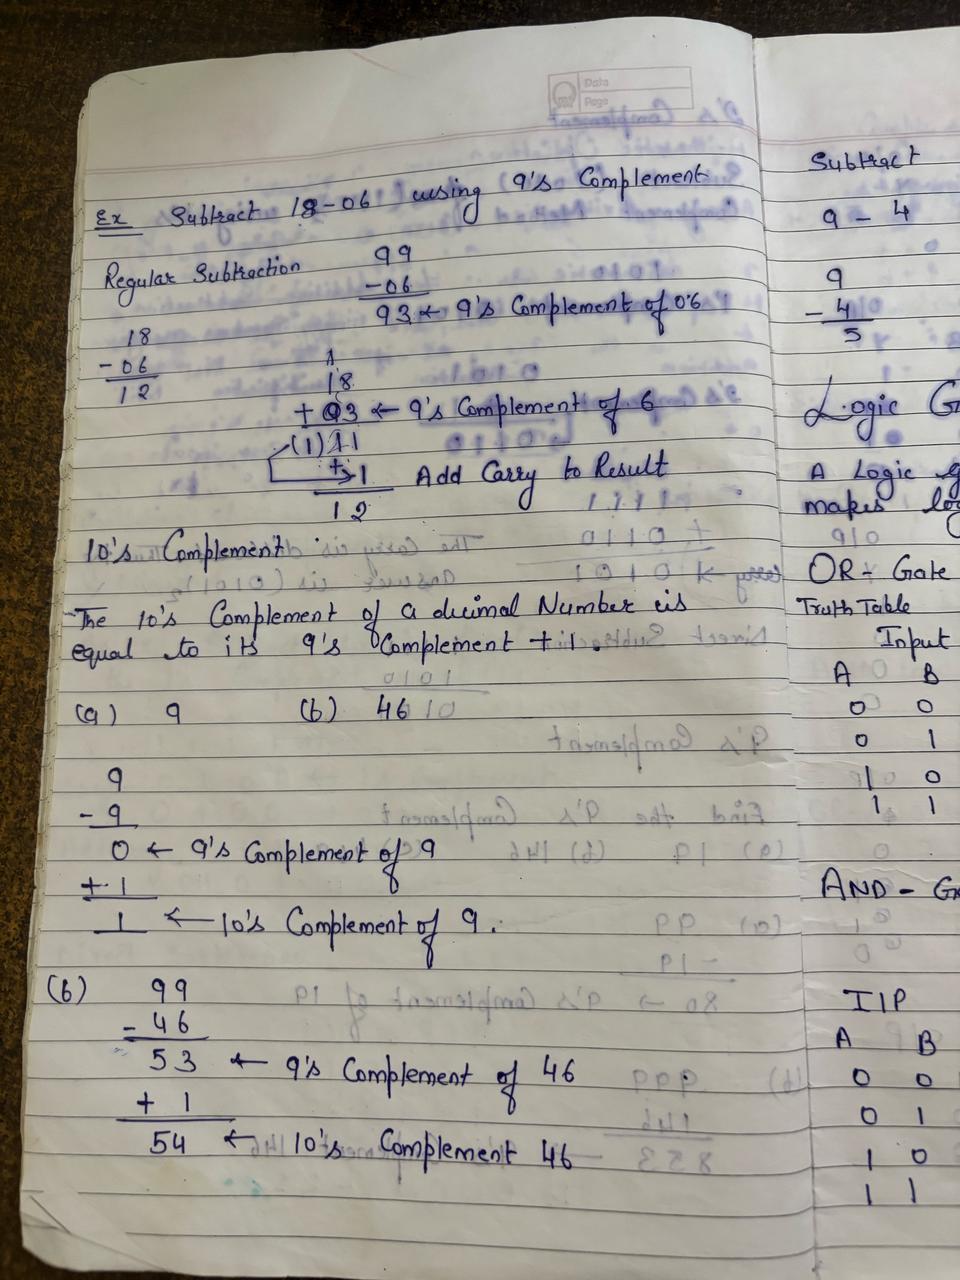 Date
Page
Ex Subtract 18-06 using 9's Complement
Regular Subtraction
18
- 06
12
99
- 06
93 ← 9's Complement of 06
1
18
+ 93 ← 9's Complement of 6
(1) 11
+ → 1 Add Carry to Result
12
10's Complement :
The 10's Complement of a decimal Number is
equal to its 9's Complement + 1.
(a) 9 (b) 46
9
- 9
0 ← 9's Complement of 9
+ 1
1 ← 10's Complement of 9.
(b) 99
- 46
53 ← 9's Complement of 46
+ 1
54 ← 10's Complement 46
Subtract
9 - 4
9
- 4
5
Logic G
A Logic g
makes lo
OR - Gate
Truth Table
Input
A B
0 0
0 1
1 0
1 1
AND - Ga
I/P
A B
0 0
0 1
1 0
1 1